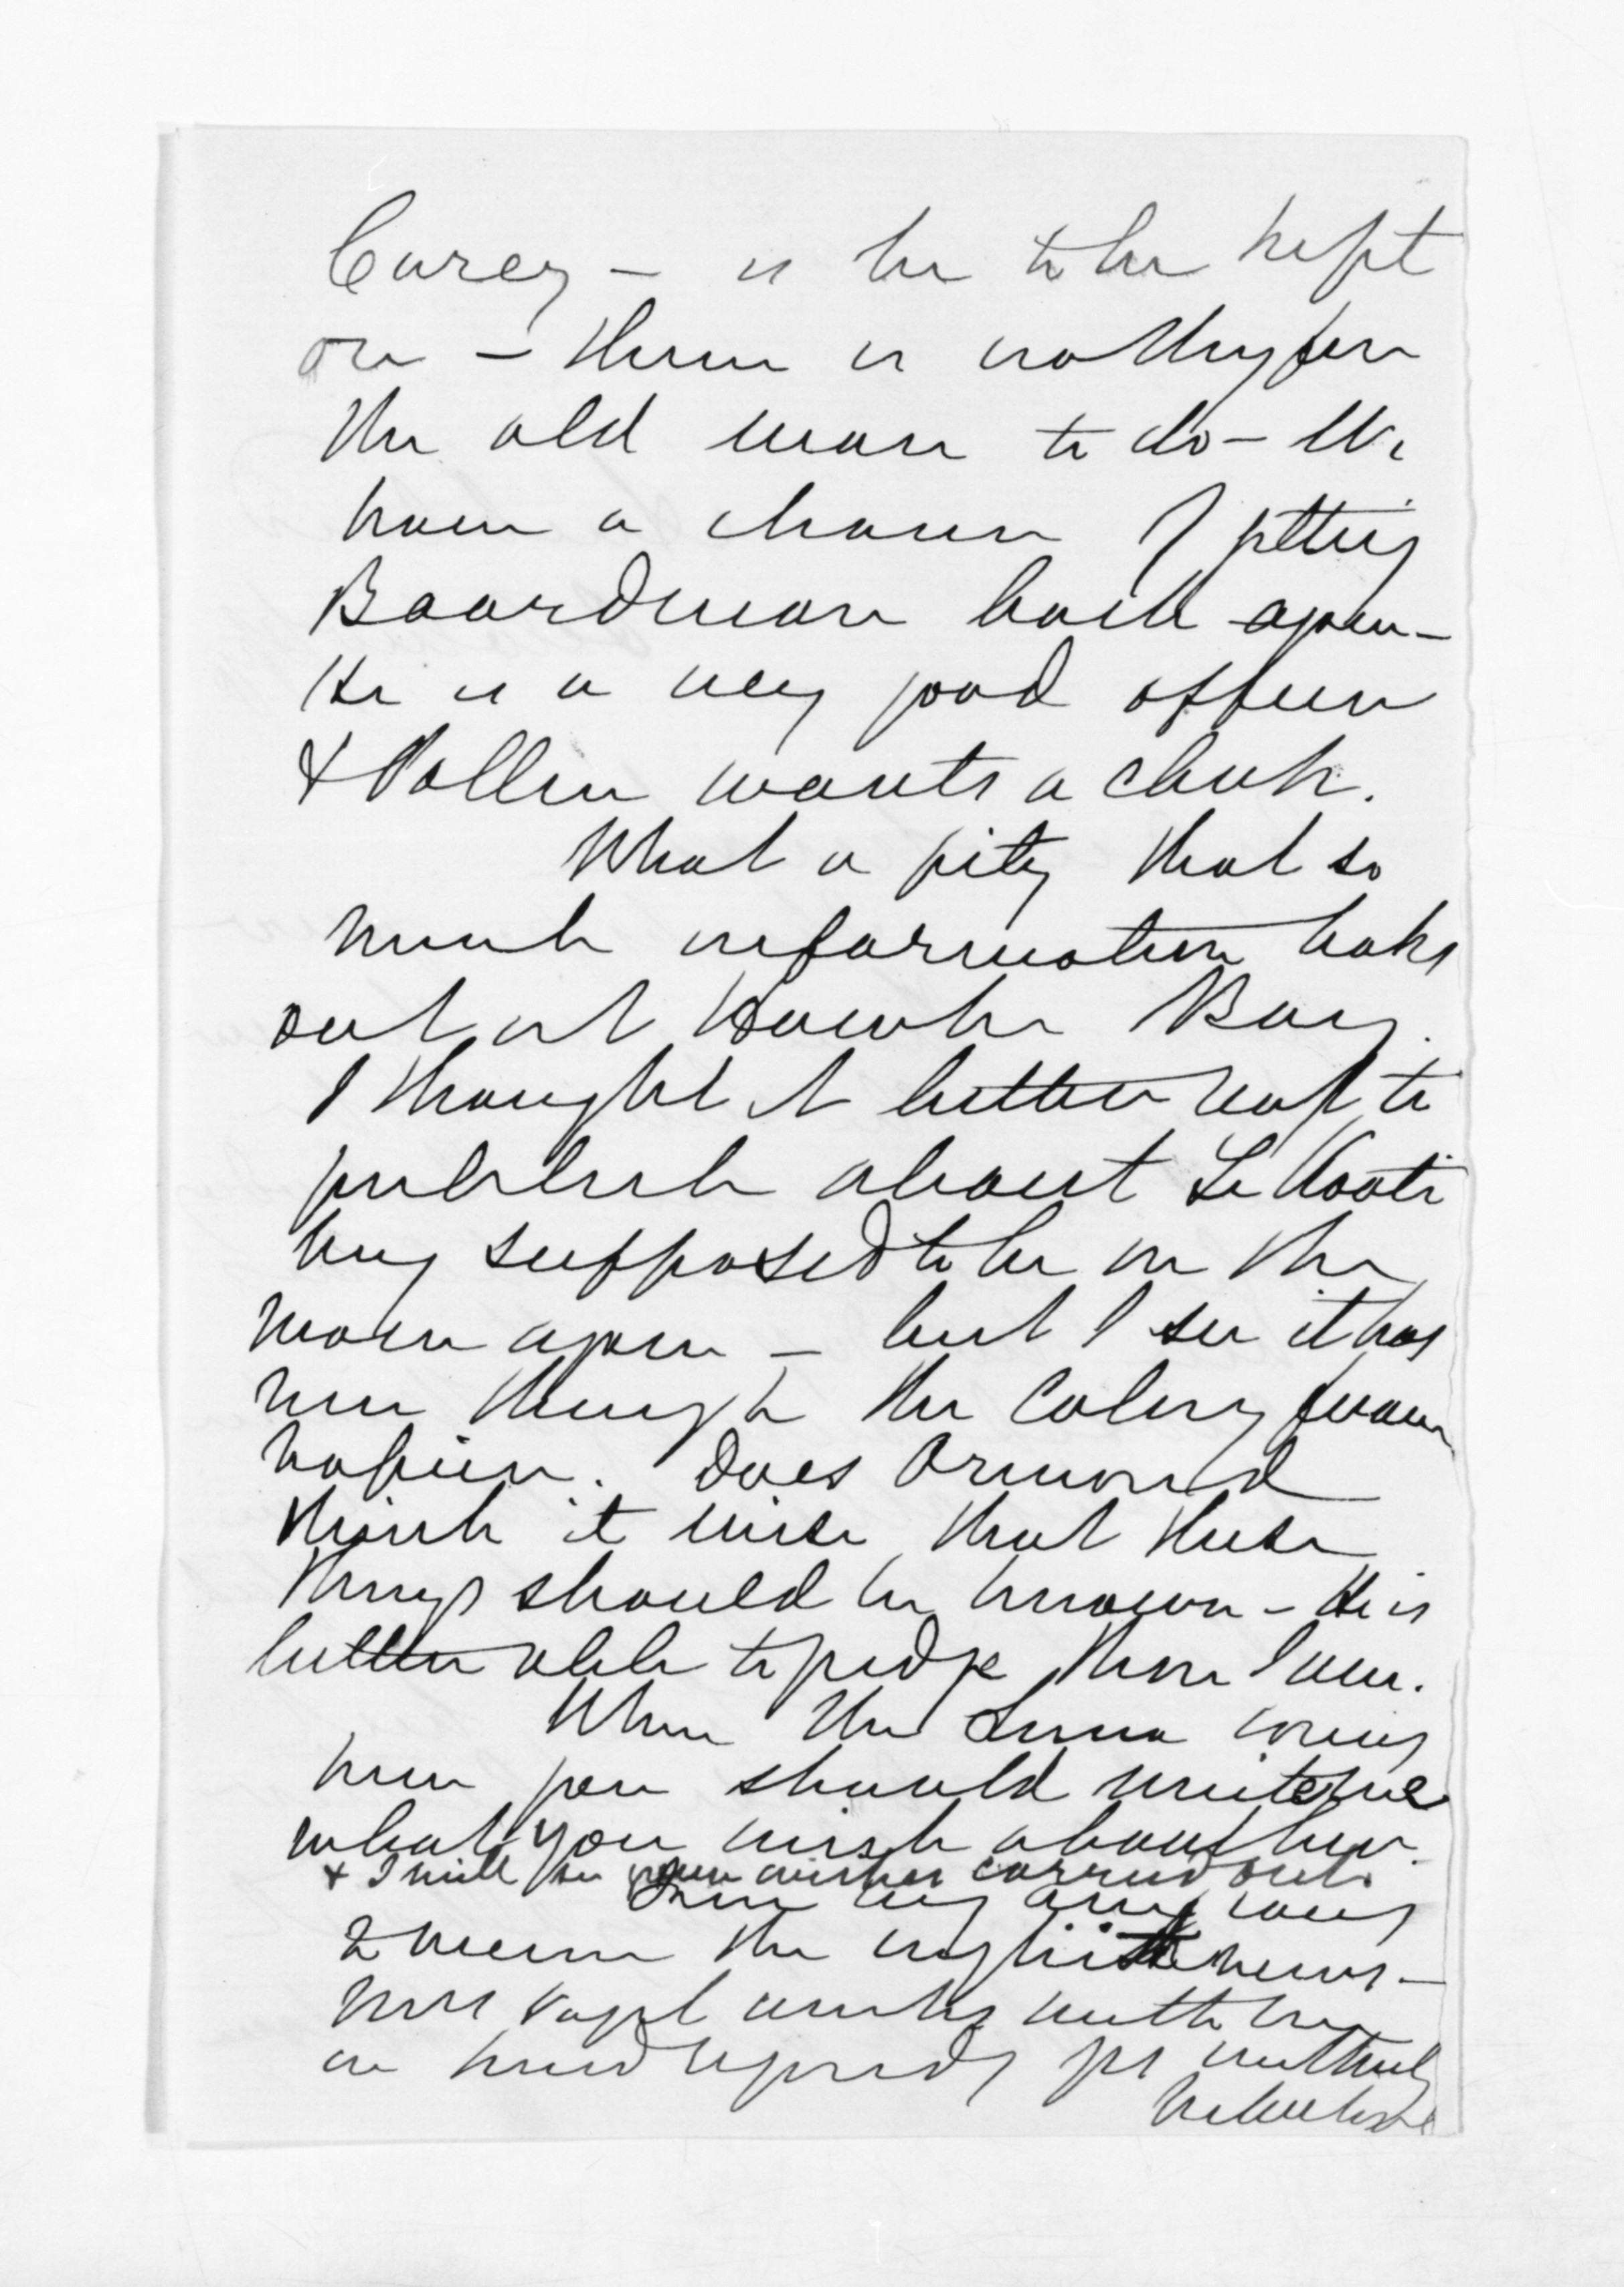 Carey – is he to be kept
on – there is nothing for
the old man to do – We
have a chance of getting
Boardman back again –
He is a very good officer
& Pollen wants a clerk.
What a pity that so
much information leaks
out at Hawke's Bay.
I thought it better not to
publish about Te Kooti
being supposed to be on the
move again – but I see it has
run through the Colony from
Napier. Does Ormond
think it wise that these
things should be known – He is
better able to judge than I am.
When the Luna comes
here you should write me
what you wish about her.
& I will see your wishes carried out.
I am very
the English news –
Mrs Vogel unites with me
in kind regards yrs truly